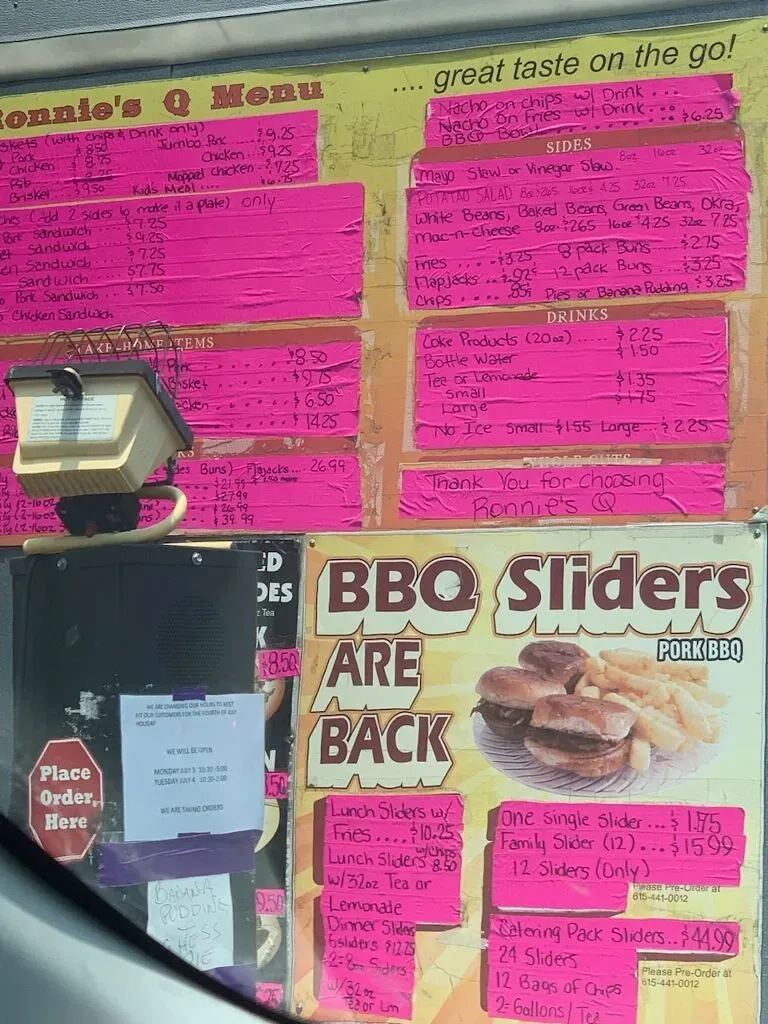 .... great taste on the go!
Ronnie's Q Menu
skets (with chips & Drink only)
Pork $8.50
Chicken $8.75
Rib
Brisket $9.50
Jumbo Pork $9.25
Chicken $9.25
Mopped chicken $7.25
Kids Meal ....
ches (Add 2 sides to make it a plate) only
Sandwich $7.25
Sandwich $9.25
en Sandwich $7.25
Sandwich $7.75
Pork Sandwich $7.50
Chicken Sandwich
TAKE-HOME ITEMS
Pork $8.50
sket $9.75
cken $6.50
$14.25
des Buns) Flapjacks... 26.99
$21.99
$27.99
$26.99
$39.99
Nacho on chips w/ Drink ...
Nacho on Fries w/ Drink ..
BBQ Bowl $6.25
SIDES
Mayo Slaw or Vinegar Slaw 8oz 16oz 32oz
POTATAO SALAD 8oz $2.65 16oz $4.25 32oz 7.25
White Beans, Baked Beans, Green Beans, Okra,
Mac-n-Cheese 8oz $2.65 16oz $4.25 32oz 7.25
Fries $3.25 8 pack Buns $2.75
Flapjacks .92¢ 12 pack Buns ... $3.25
Chips .... .85¢ Pies or Banana Pudding $3.25
DRINKS
Coke Products (20oz) ..... $2.25
Bottle Water $1.50
Tee or Lemonade
Small $1.35
Large $1.75
No Ice Small $1.55 Large... $2.25
Thank You for Choosing
Ronnie's Q
z Tea
$8.50
.50
9.50
WE ARE CHANGING OUR HOURS TO BEST
FIT OUR CUSTOMERS FOR THE FOURTH OF JULY
HOLIDAY
WE WILL BE OPEN
MONDAY JULY 3 10:30-5:00
TUESDAY JULY 4 10:30-2:00
WE ARE TAKING ORDERS
Place
Order
Here
BANANA
PUDDING
CHESS
PIE
BBQ Sliders
ARE
BACK
PORK BBQ
Lunch Sliders w/
Fries .... $10.25
Lunch Sliders w/chips 8.50
w/32oz Tea or
Lemonade
Dinner Slider
6 sliders $12.25
2-8oz Sides
w/32oz
Tea or Lm
One Single Slider... $1.75
Family Slider (12) .. $15.99
12 Sliders (Only)
Please Pre-Order at
615-441-0012
Catering Pack Sliders.. $44.99
24 Sliders
12 Bags of Chips
2-Gallons/Tea
Please Pre-Order at
615-441-0012